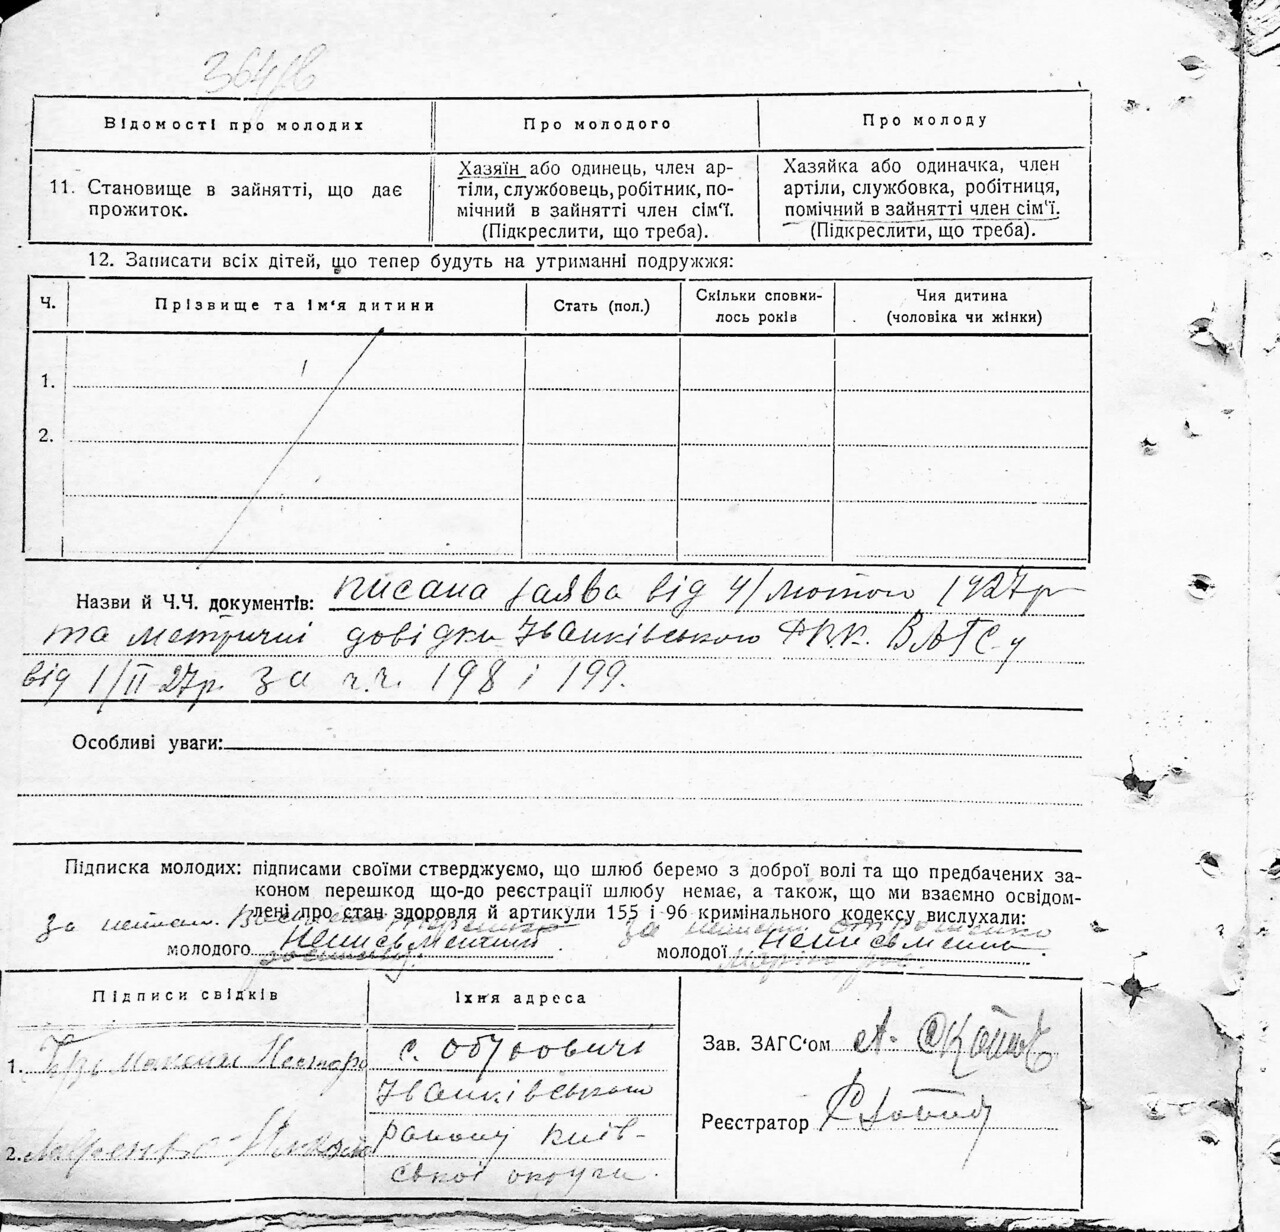 Відомості про молодих
Про молодого
Про молоду
11. Становище в зайнятті, що дає
прожиток.
Хазяїн або одинець, член ар-
тіли, службовець, робітник, по-
мічний в зайнятті член сім'ї.
(Підкреслити, що треба).
Хазяйка або одиначка, член
артіли, службовка, робітниця,
помічний в зайнятті член сім'ї.
(Підкреслити, що треба).
12. Записати всіх дітей, що тепер будуть на утриманні подружжя:
Ч.
Прізвище та ім'я дитини
Стать (пол.)
Скільки сповни-
лось років
Чия дитина
(чоловіка чи жінки)
1.
2.
Назви й Ч.Ч. документів: писана заява від 4/лютого 1927р
та метричні довідки Іванківського ЗАГС-у
від 1/II-27р. за ч.ч. 198 і 199.
Особливі уваги:
Підписка молодих: підписами своїми стверджуємо, що шлюб беремо з доброї волі та що предбачених за-
коном перешкод що-до реєстрації шлюбу немає, а також, що ми взаємно освідом-
лені про стан здоровля й артикули 155 і 96 кримінального кодексу вислухали:
за за
молодого Неписьменний молодої Неписьменна
Підписи свідків
Їхня адреса
1. Максим
с. Обуховичі
Іванківського
2.
району Київ-
ської округи.
Зав. ЗАГС'ом А.
Реєстратор